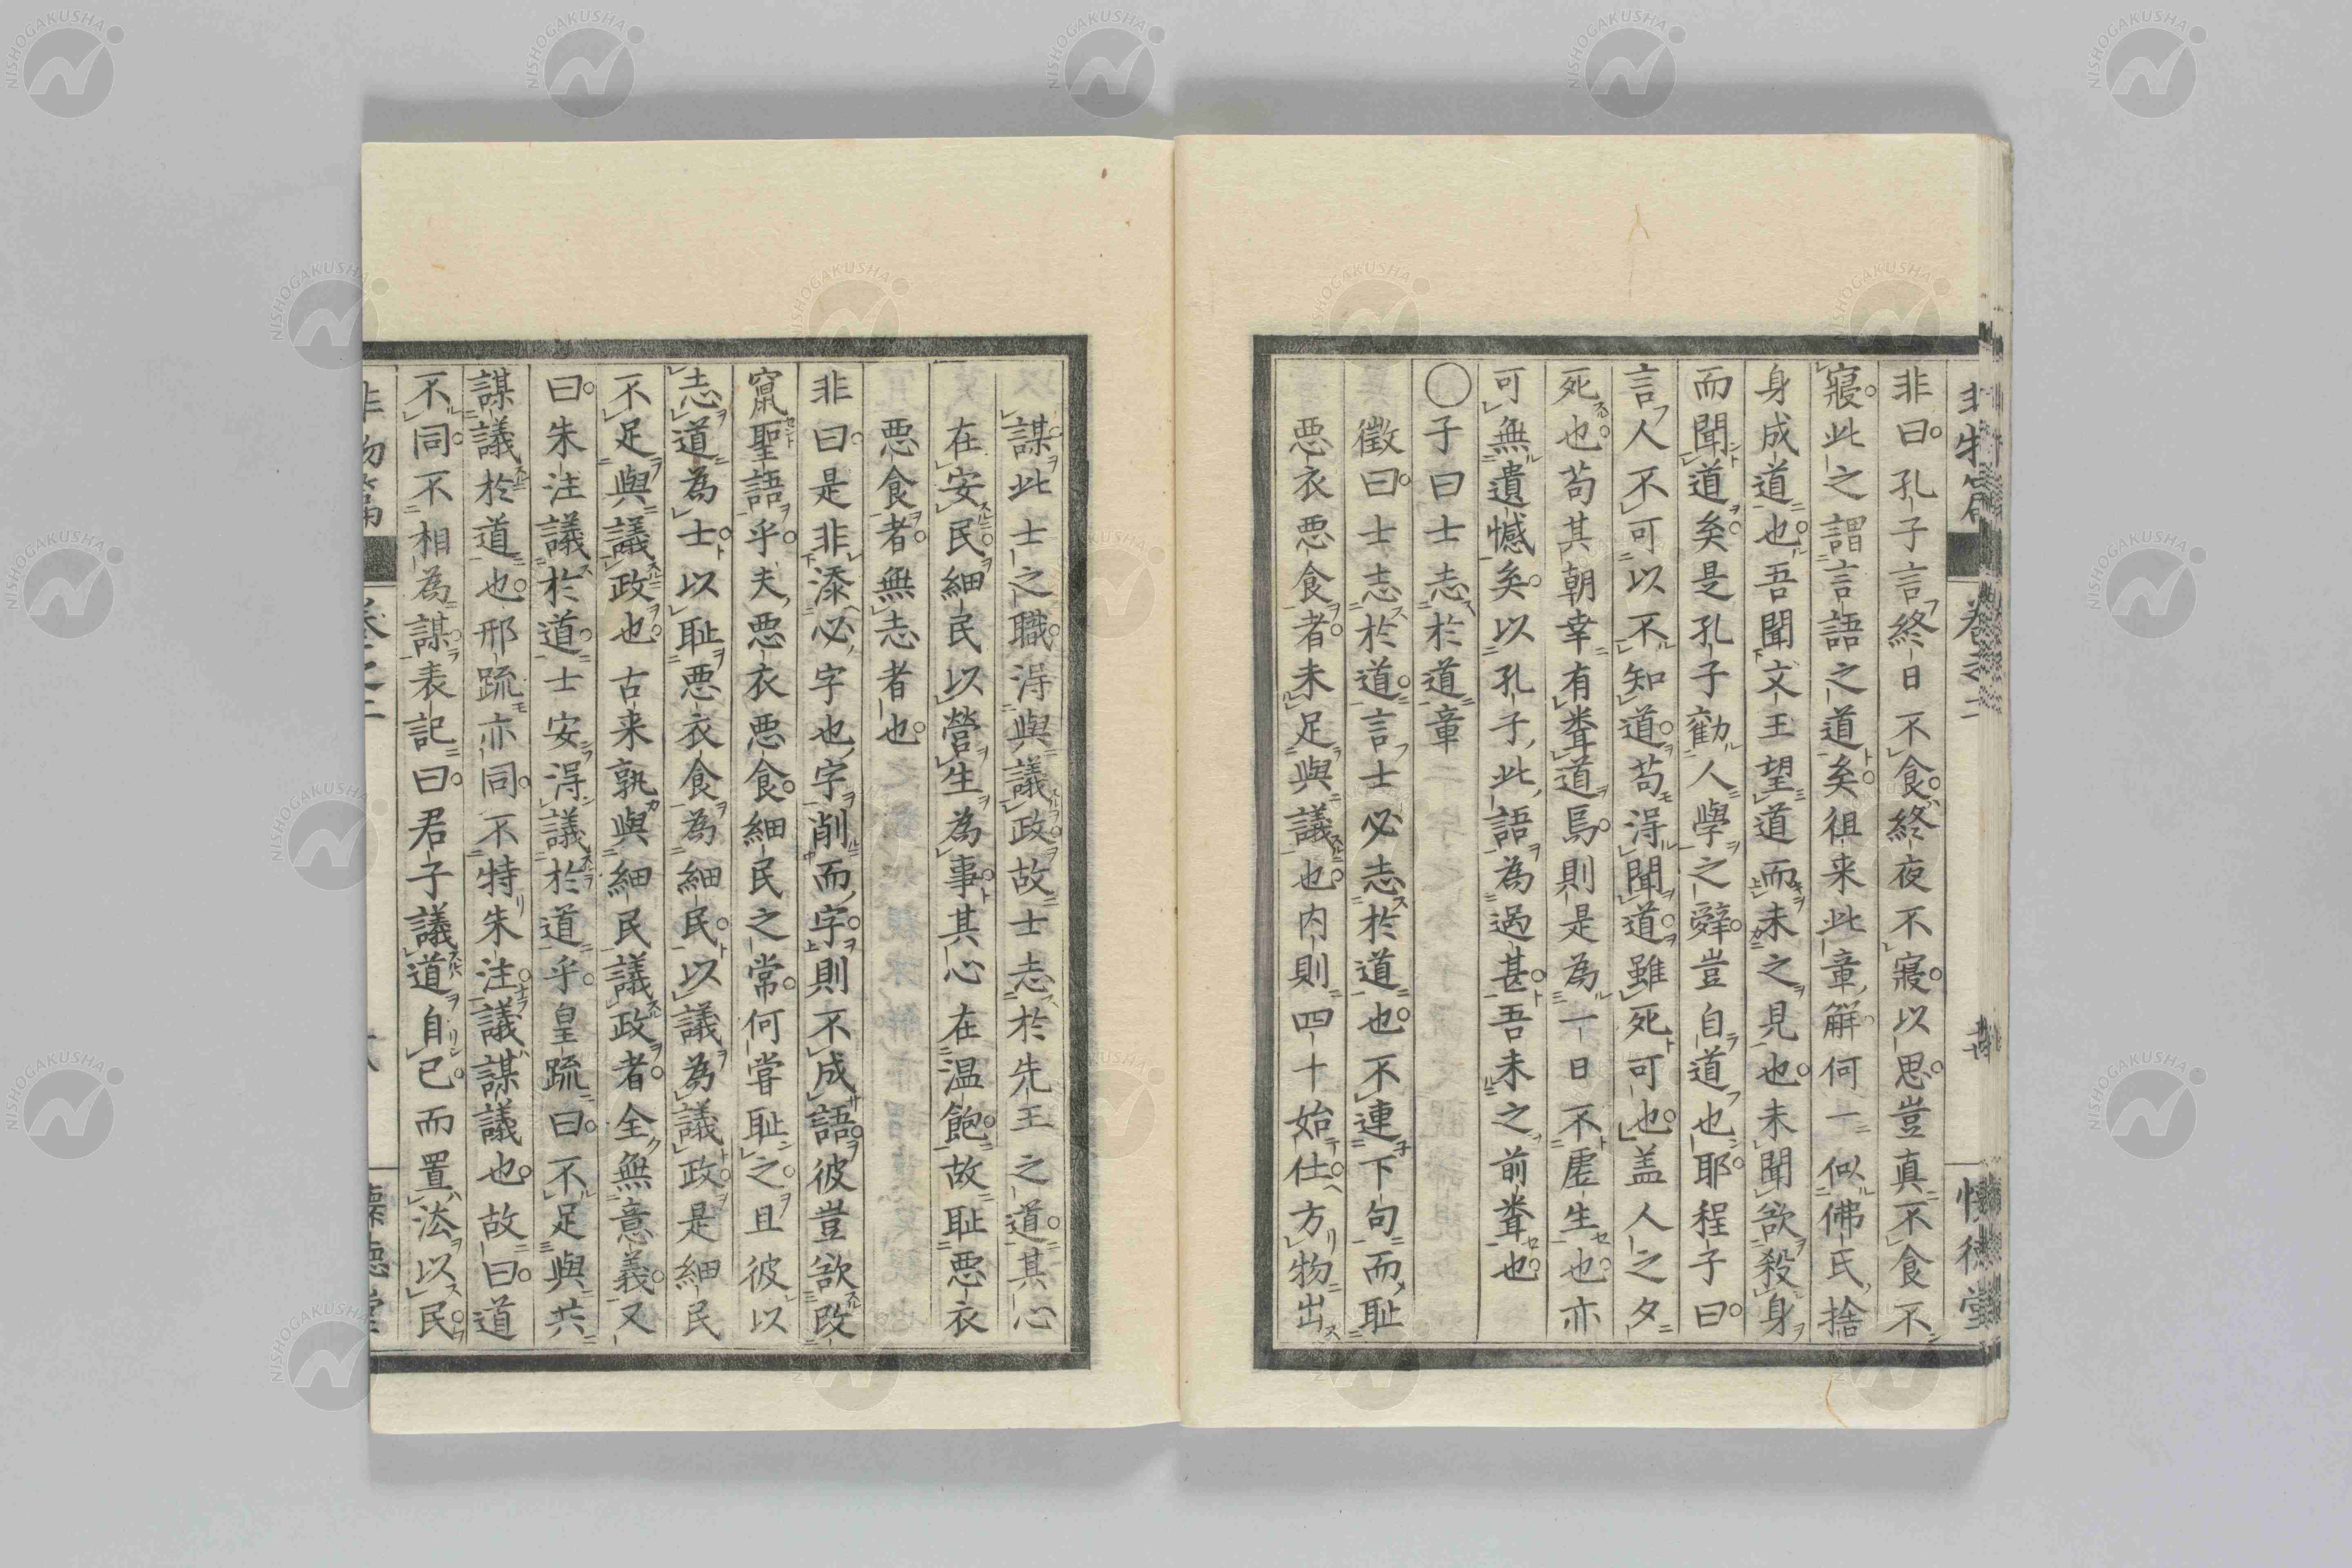 非曰孔子言終日不食終夜不寢以思豈真不食不
寢此之謂言語之道矣徂来此章解何一似佛氏捨
身成道也吾聞文王望道而未之見也未聞欲殺身
而聞道矣是孔子勸人學之辭豈自道也耶程子曰
言人不可以不知道苟淂聞道雖死可也盖人之夕
死也苟其朝幸有聞道焉則是為一日不虛生也亦
可無遺憾矣以孔子此語為過甚吾未之前聞也
〇子曰士志於道章
徵曰士志於道言士必志於道也不連下句而恥
惡衣惡食者未足與議也内則四十始仕方物出
謀此士之職淂與議政故士志於先王之道其心
在安民細民以營生為事其心在温飽故恥惡衣
惡食者無志者也
非曰是非添必字也字削而字則不成語彼豈欲改
竄聖語乎夫惡衣惡食細民之常何嘗恥之且彼以
志道為士以恥惡衣食為細民以議為議政是細民
不足與議政也古来孰與細民議政者全無意義又
曰朱注議於道士安淂議於道乎皇疏曰不足與共
謀議於道也邢疏亦同不特朱注議謀議也故曰道
不同不相為謀表記曰君子議道自己而置法以民
非物篇 卷之二 懷德堂